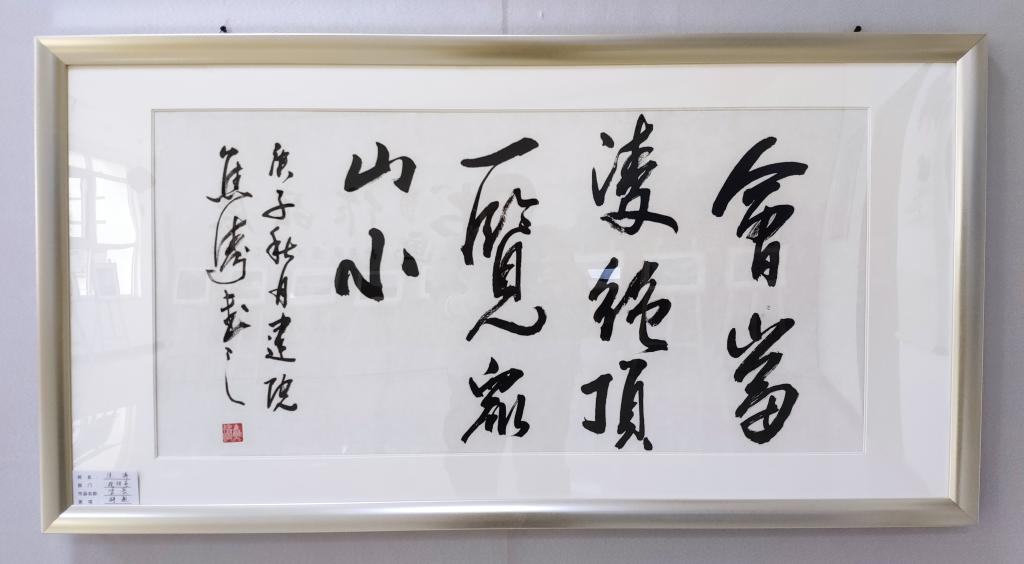 會當
凌絕頂
一覽衆
山小
庚子秋月建院
焦濤書之